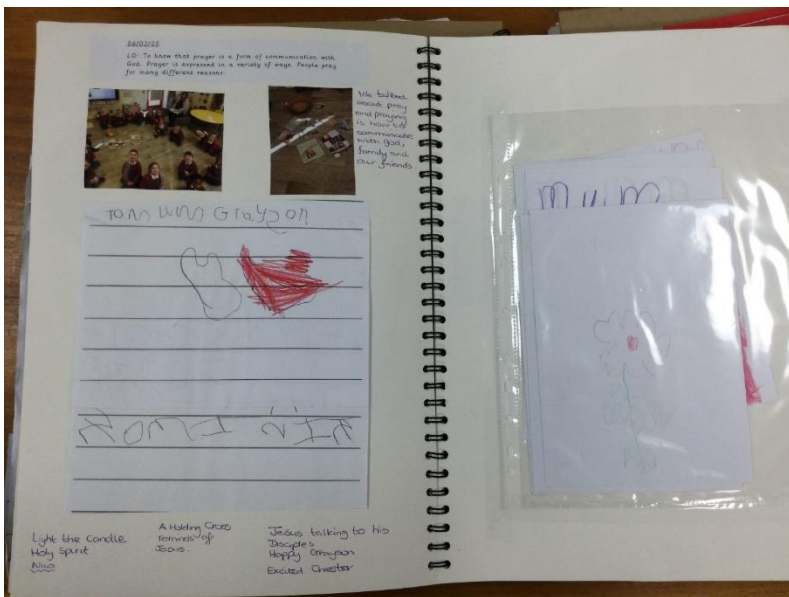 06/02/25
LO: To know that prayer is a form of communication with
God. Prayer is expressed in a variety of ways. People pray
for many different reasons.
We talked
about pray
and praying
is how we
communicate
with God,
family and
our friends
Grayson
mum
Light the Candle
Holy Spirit
Nico
A Holding Cross
reminds of
Jesus.
Jesus talking to his
Disciples
Happy Grayson
Excited Chester